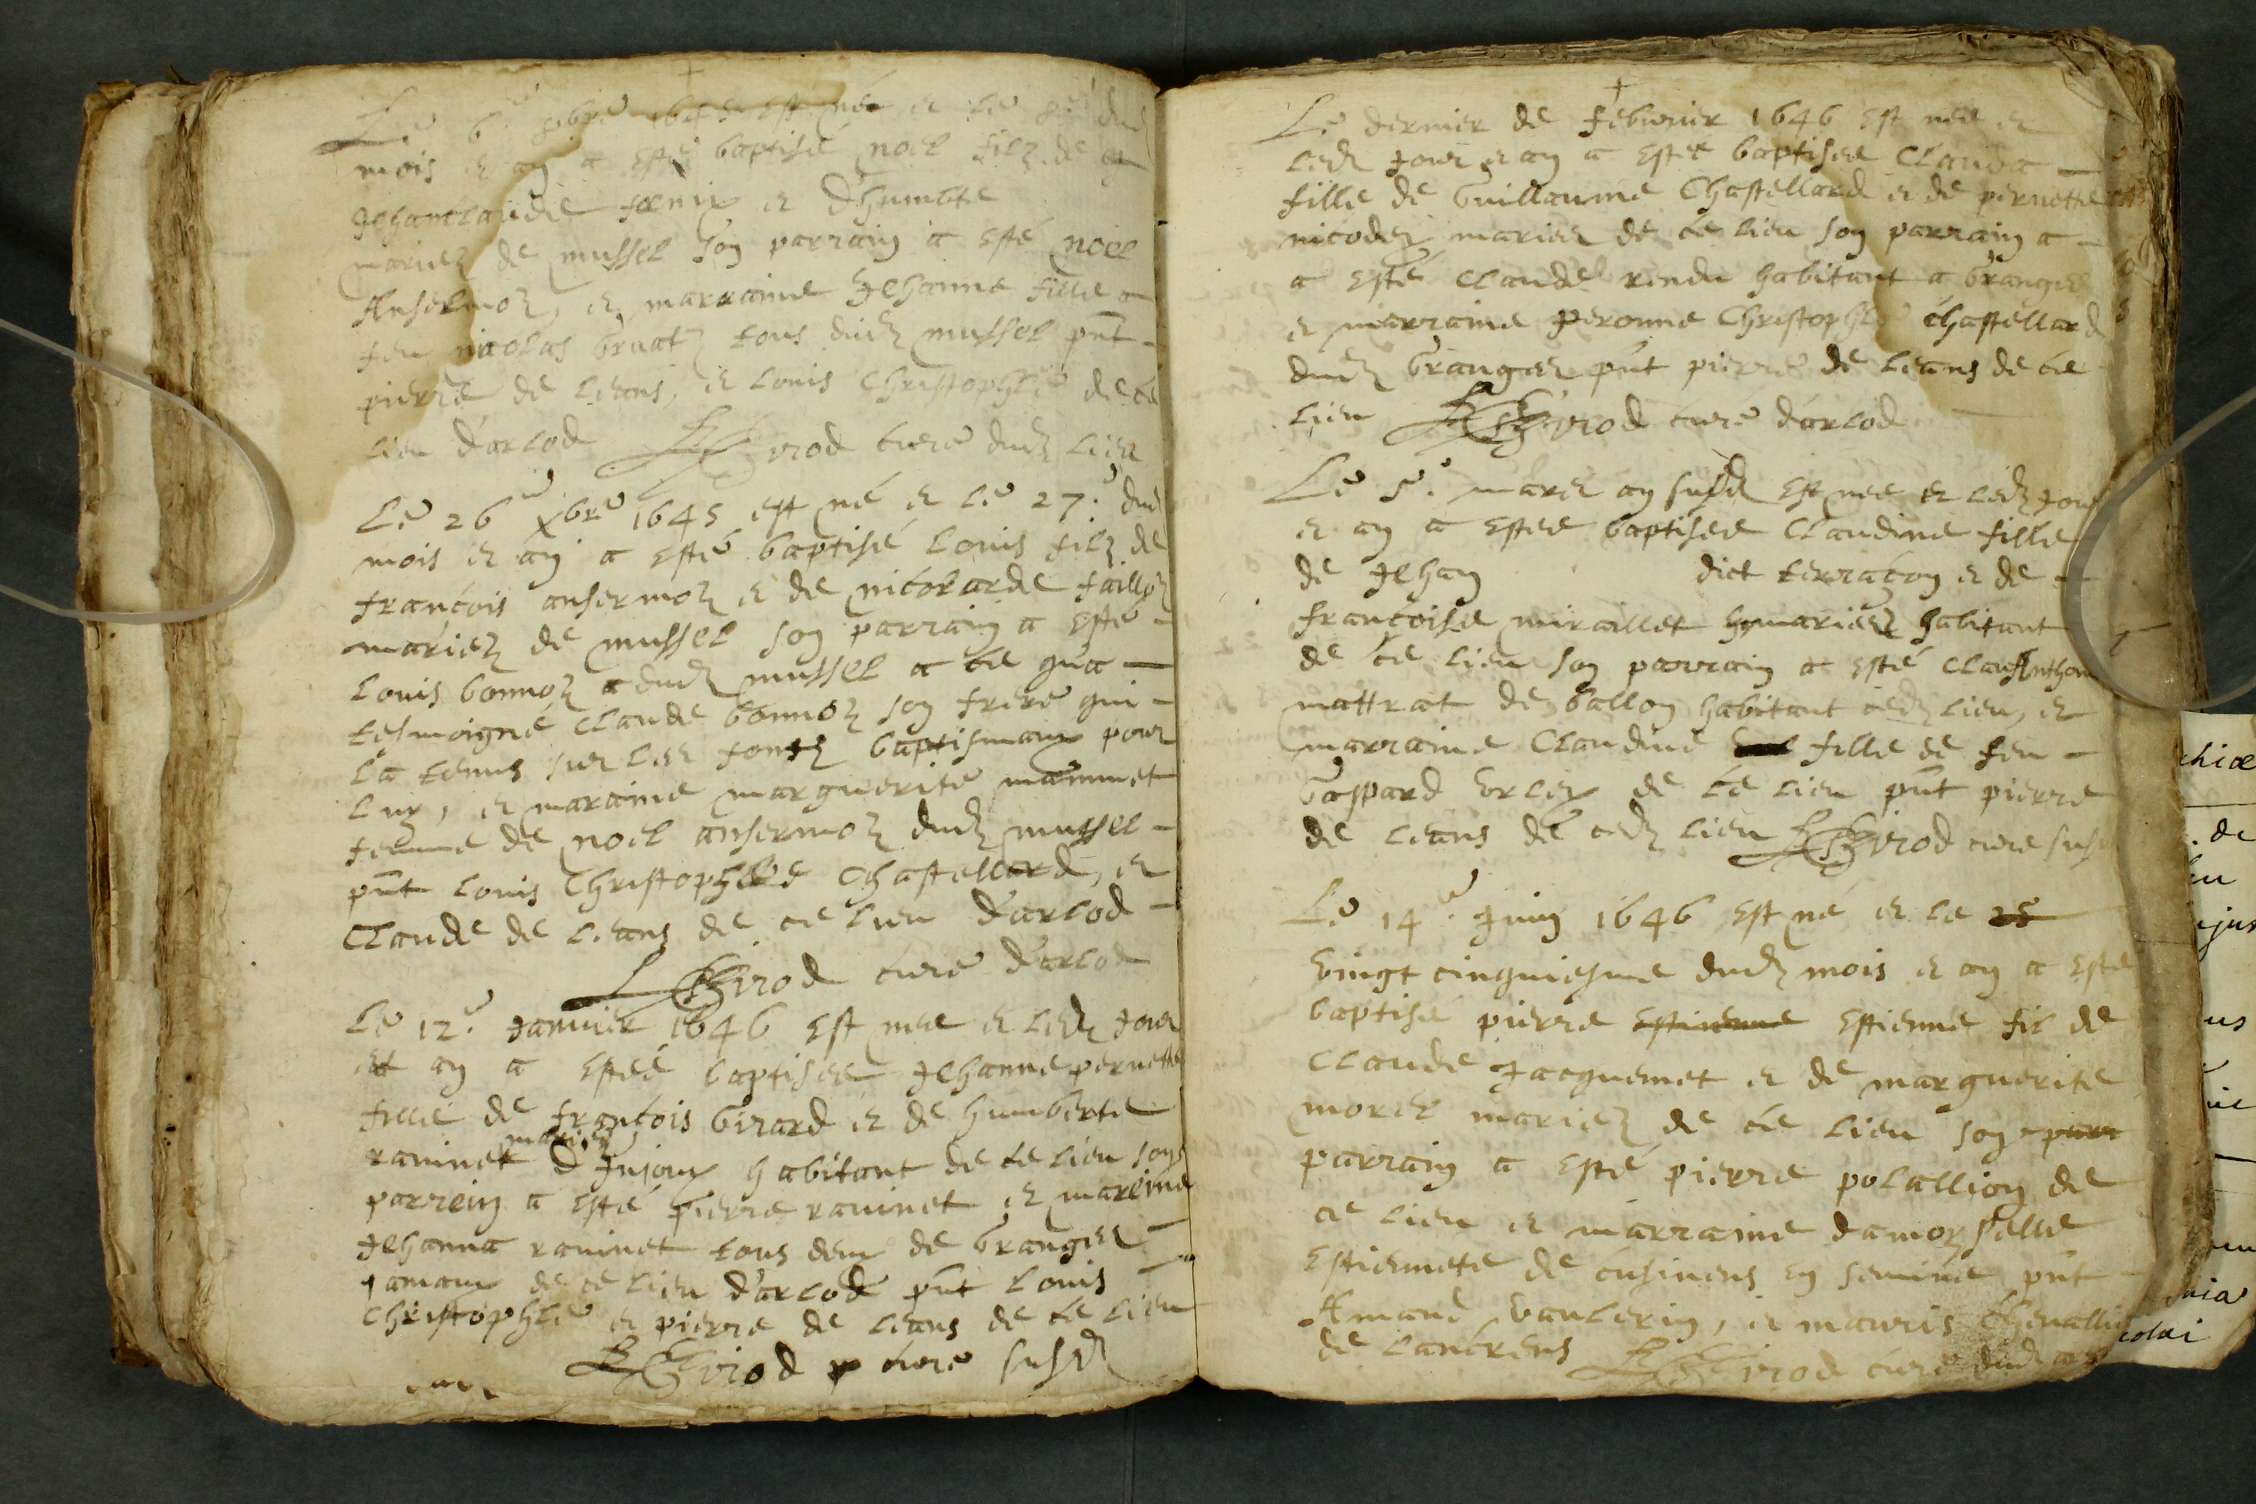 Le 6e xbre 1645 est né et le dud
mois et an a esté baptisé noel filz de
Jehanclaude et d'humbte
mariez de mussel son parrain a esté noel
Ansermoz, et marraine Jehanne fille
feu nicolas bruatz tous dudz mussel pnt
pierre de leans, et louis Christophle de ce
lieu d'arlod Girod curé dudz lieu
Le 26e xbre 1645 est né et le 27e dud
mois et an a esté baptisé louis filz de
francois ansermoz et de nicolarde
mariez de mussel son parrain a esté
louis bonnoz dudz mussel a ce qu'a
tesmoigné claude bonnoz son frere qui
l'a tenus sur les fontz baptismaux pour
luy, et maraine marguerite mammet
femme de noel ansermoz dudz mussel
pnt louis Christophle Chastellard, et
Claude de leans de ce lieu d'arlod
Girod curé d'arlod
Le 12e Janvier 1646 est nee et ledz jour
et an a estéé baptisee Jehanne pernette
fille de francois Girard et de humberte
mariez
raninet d'Injoux habitant de ce lieu sons
parrein a esté pierre raninet et mareine
Jehanna raninet tous deux de Granges
de ce lieu d'arlod pnt louis
Christophle et pierre de leans de ce lieu
Girod p curé susd
Le dernier de febvrier 1646 est nee et
ledz jour et an a estee baptisee Clauda
fille de Guillaume Chastellard et de pernette
nicodez mariez de ce lieu son parrain a
a esté claude rendu habitant a Granges
et marraine peronne Christophle Chastellard
dudz Granges pnt pierre de leans de ce
lieu Girod curé d'arlod
Le 5e. mars an susd est nee et ledz jour
et an a estee baptisee Claudine fille
de Jehan dict terracon et de
francoise miraillet mariez habitant
de ce lieu son parrain a esté Clauanthone
mattrat de ballon habitant cedz lieu, et
marraine Claudine fille de feu
Gaspard Erley de ce lieu pnt pierre
de leans de cedz lieu Girod cure sus
Le 14e. Juin 1646 est né et le 25
vingt cinquiesme dudz mois et an a esté
baptisé pierre estienne estienne fil de
Claude Jacquemet et de marguerite
morel mariez de ce lieu son parr
parrain a esté pierre polallion de
ce lieu et marraine damoyselle
Estiennete de cusinens en semine pnt
Amand vaulerin, et mauris Chevallie
de lancrens Girod curé dudz